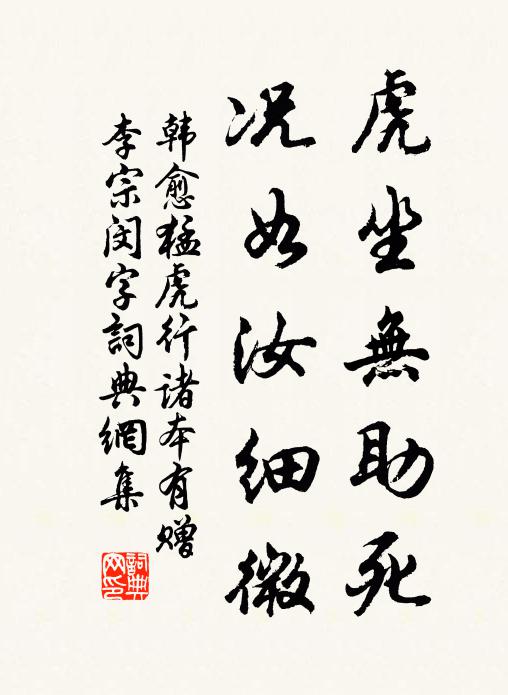 虎坐無助死
况如汝細微
韩愈猛虎行诸本有赠
李宗闵字詞典網集
詞典
网印